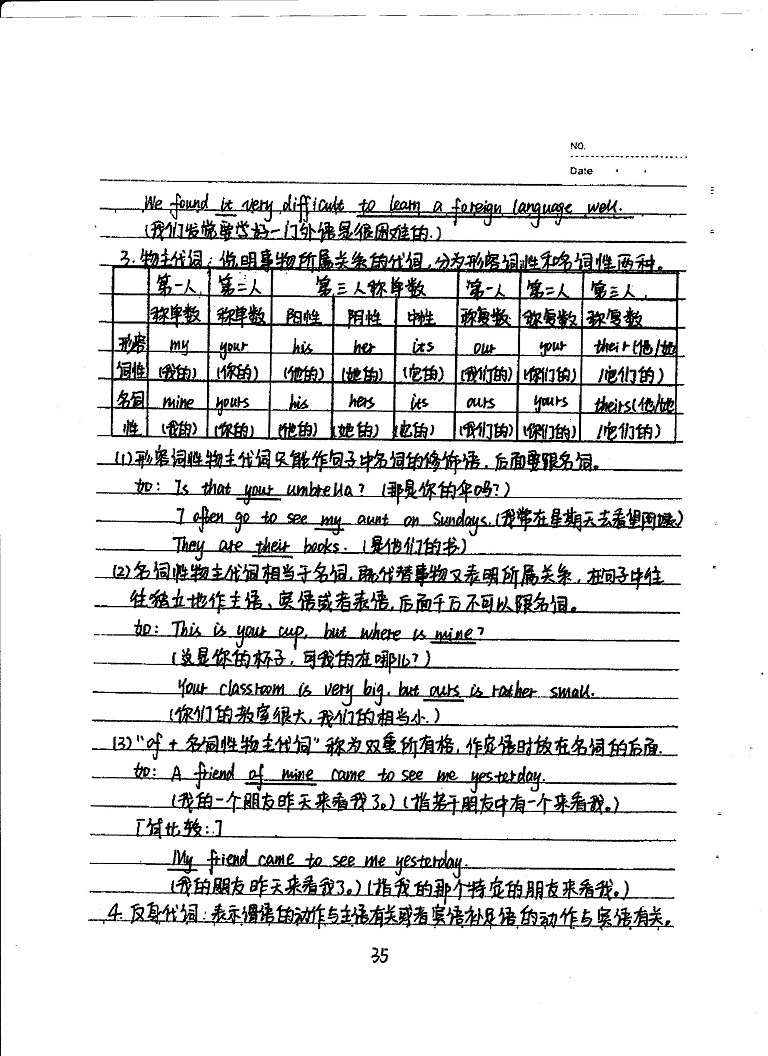 NO.
Date
We found it very difficult to learn a foreign language well.
(我们发觉要学好一门外语是很困难的.)
3. 物主代词: 说明事物所属关系的代词, 分为形容词性和名词性两种。
第一人 第二人 第三人称单数 第一人 第二人 第三人
称单数 称单数 阳性 阴性 中性 称复数 称复数 称复数
形容 my your his her its our your their(他/她
词性 (我的) (你的) (他的) (她的) (它的) (我们的) (你们的) /它们的)
名词 mine yours his hers its ours yours theirs(他/她
性 (我的) (你的) (他的) (她的) (它的) (我们的) (你们的) /它们的)
(1) 形容词性物主代词只能作句子中名词的修饰语, 后面要跟名词。
如: Is that your umbrella? (那是你的伞吗?)
I often go to see my aunt on Sundays. (我常在星期天去看望阿姨)
They are their books. (是他们的书)
(2) 名词性物主代词相当于名词, 既代替事物又表明所属关系, 在句子中往
往独立地作主语、宾语或者表语, 后面千万不可以跟名词。
如: This is your cup, but where is mine?
(这是你的杯子, 可我的在哪儿?)
Your classroom is very big, but ours is rather small.
(你们的教室很大, 我们的相当小.)
(3) "of + 名词性物主代词" 称为双重所有格, 作定语时放在名词的后面.
如: A friend of mine came to see me yesterday.
(我的一个朋友昨天来看我了。) (指若干朋友中有一个来看我。)
[试比较:]
My friend came to see me yesterday.
(我的朋友昨天来看我了。) (指我的那个特定的朋友来看我。)
4. 反身代词: 表示谓语的动作与主语有关或者宾语补足语的动作与宾语有关。
35